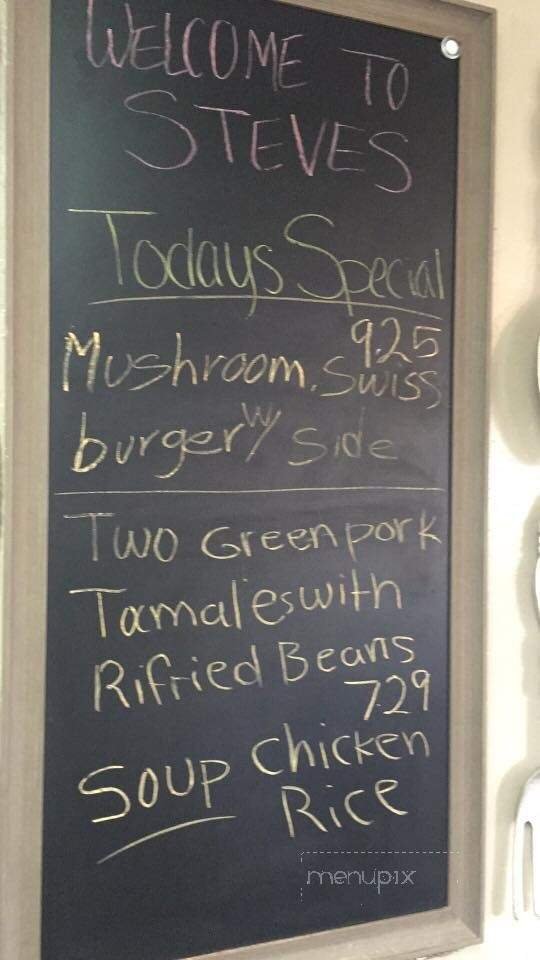 WELCOME TO
STEVES
Todays Special
9.25
Mushroom. Swiss
burger w/ Side
Two Green pork
Tamales with
Rifried Beans
7.29
Soup Chicken
Rice
menupix